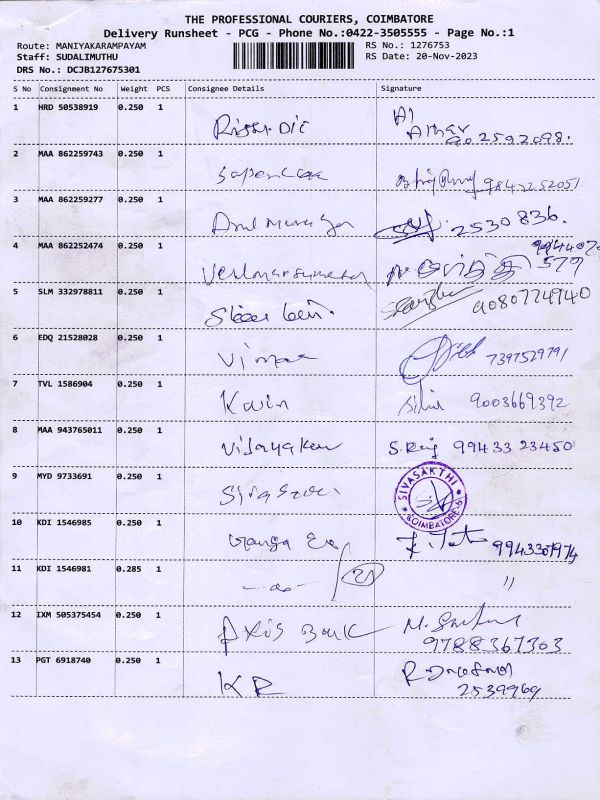 THE PROFESSIONAL COURIERS, COIMBATORE
Delivery Runsheet - PCG - Phone No.:0422-3505555 - Page No.:1
Route: MANIYAKARAMPAYAM RS No.: 1276753
Staff: SUDALIMUTHU RS Date: 20-Nov-2023
DRS No.: DCJB127675301
S No Consignment No Weight PCS Consignee Details Signature
1 HRD 50538919 0.250 1
2 MAA 862259743 0.250 1
3 MAA 862259277 0.250 1 2530836.
4 MAA 862252474 0.250 1
5 SLM 332978811 0.250 1 9080774940
6 EDQ 21528028 0.250 1 7397529791
7 TVL 1586904 0.250 1 Kavin 9003669392
8 MAA 943765011 0.250 1 S. Raj 99433 23450
9 MYD 9733691 0.250 1 SIVASAKTHI
10 KDI 1546985 0.250 1 Ganga
11 KDI 1546981 0.285 1 -do- "
12 IXM 505375454 0.250 1 Axis Bank 9788367303
13 PGT 6918740 0.250 1 KR 2539969